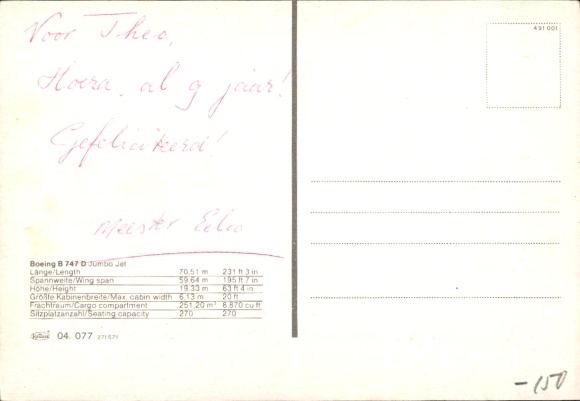 Voor Theo,
Hoera, al 9 jaar!
Gefeliciteerd!
Meester Eelco
491 001
Boeing B 747 D Jumbo Jet
Länge/Length 70,51 m 231 ft 3 in
Spannweite/Wing span 59,64 m 195 ft 7 in
Höhe/Height 19,33 m 63 ft 4 in
Größte Kabinenbreite/Max. cabin width 6,13 m 20 ft
Frachtraum/Cargo compartment 251,20 m³ 8,870 cu ft
Sitzplatzanzahl/Seating capacity 270 270
04. 077 271571
-150